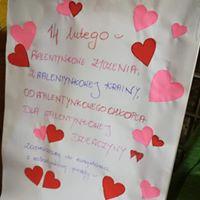 14 lutego
WALENTYNKOWE ŻYCZENIA
Z WALENTYNKOWEJ KRAINY,
OD WALENTYNKOWEGO CHŁOPCA
DLA WALENTYNKOWEJ
DZIEWCZYNY